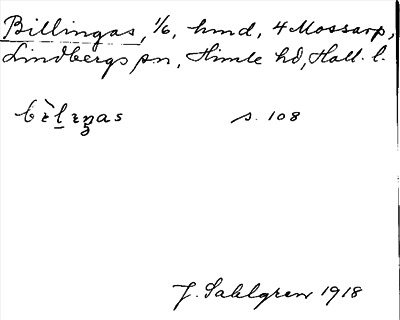 Billingas, 1/6, hmd, 4 Mossarp,
Lindbergs sn, Himle hd, Hall. l.
bìlıŋas s. 108
J. Sahlgren 1918